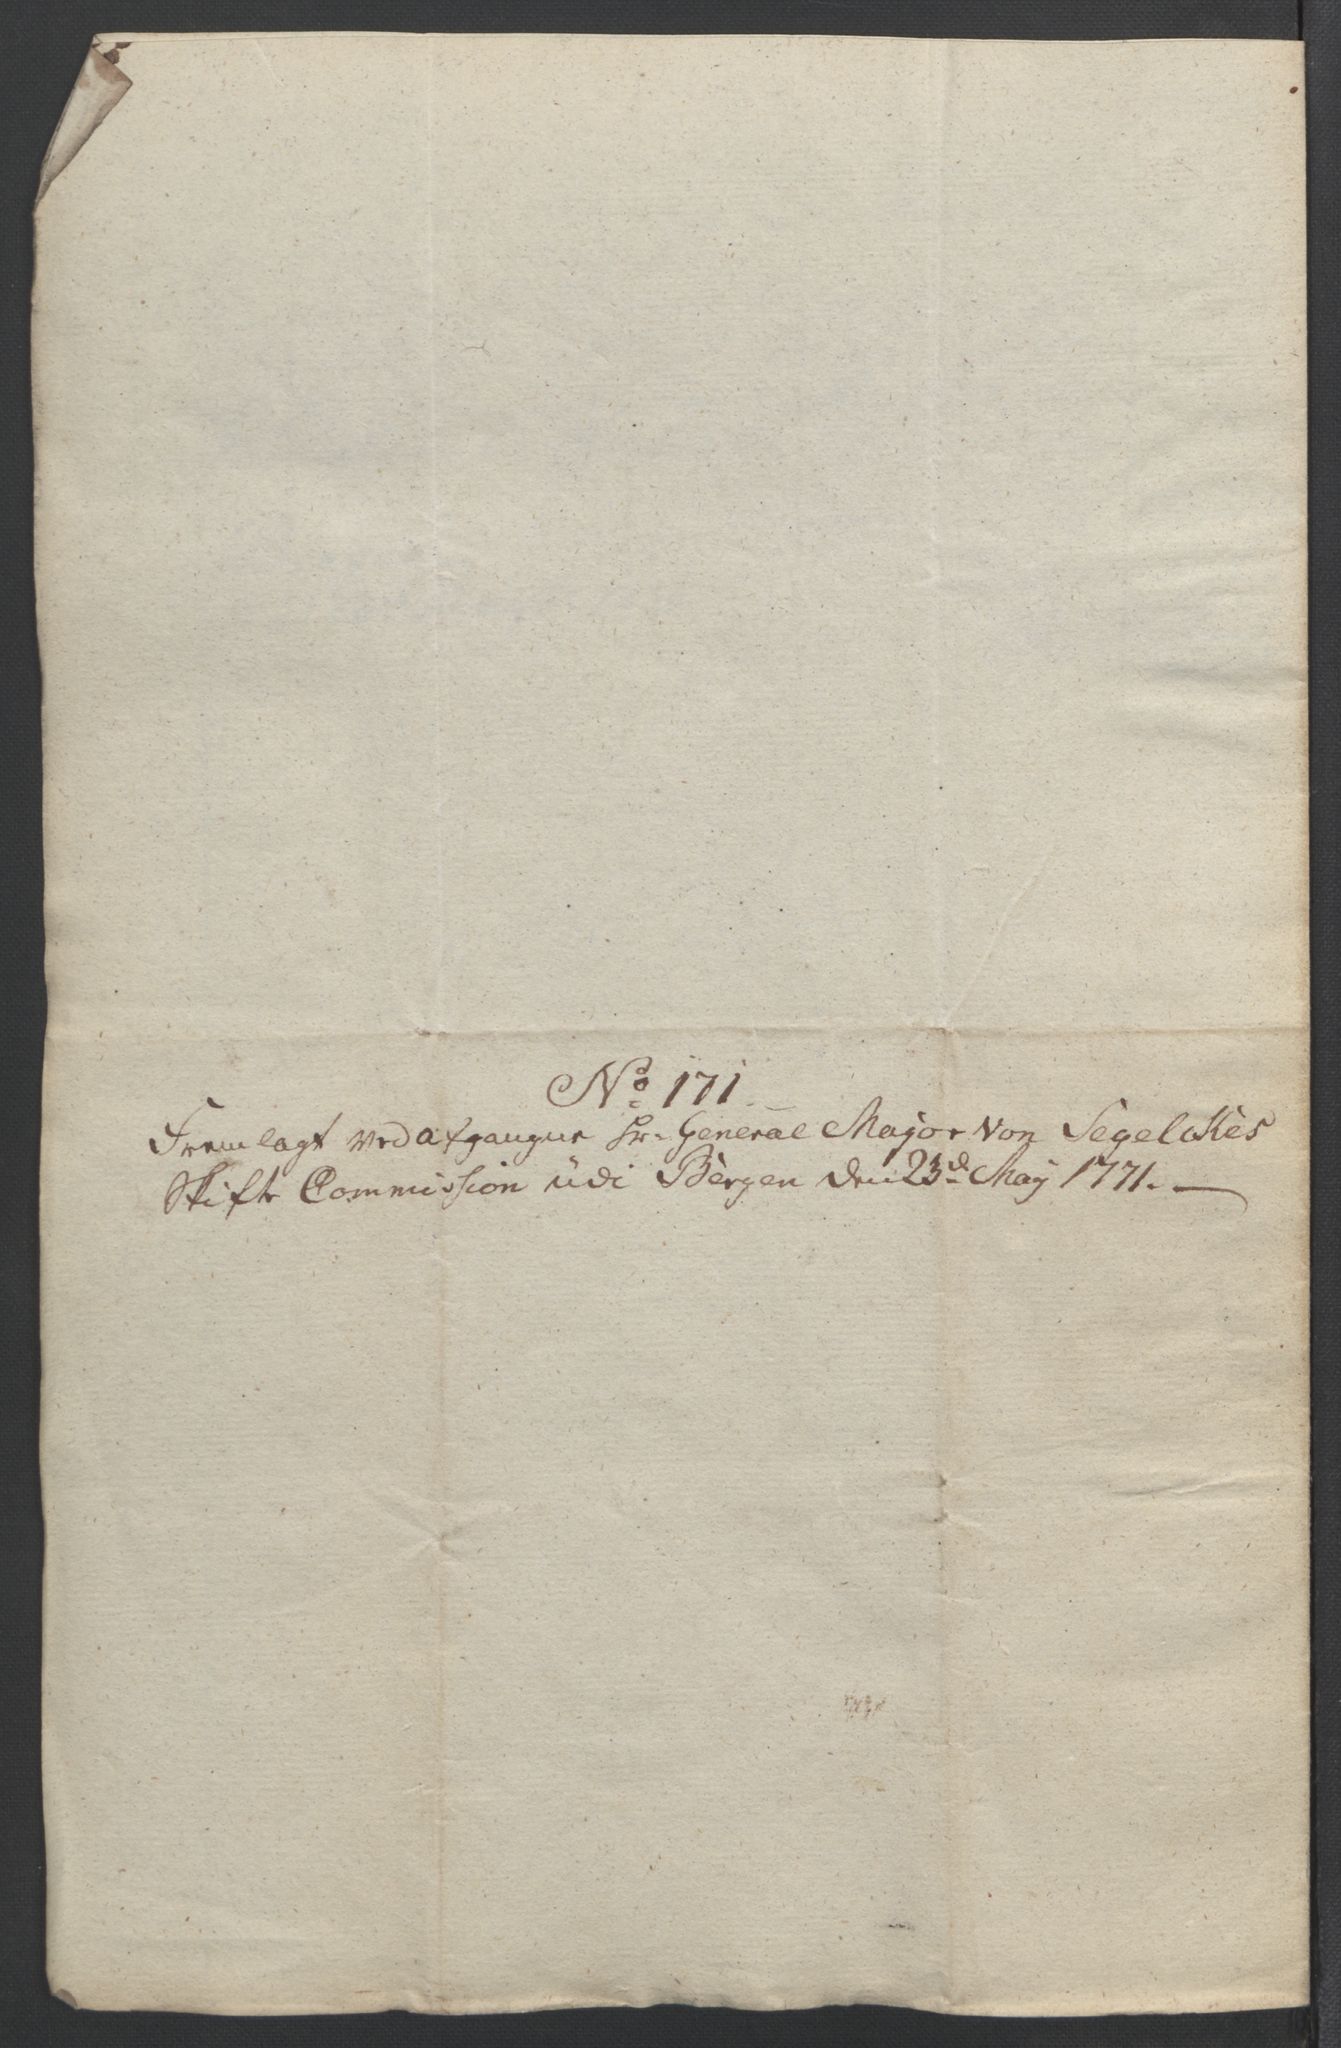 No 171.
Fremlagt ved afgangne Hr. General Major Von Segelckes
Skifte Commission udi Bergen den 23d. Maij 1771.